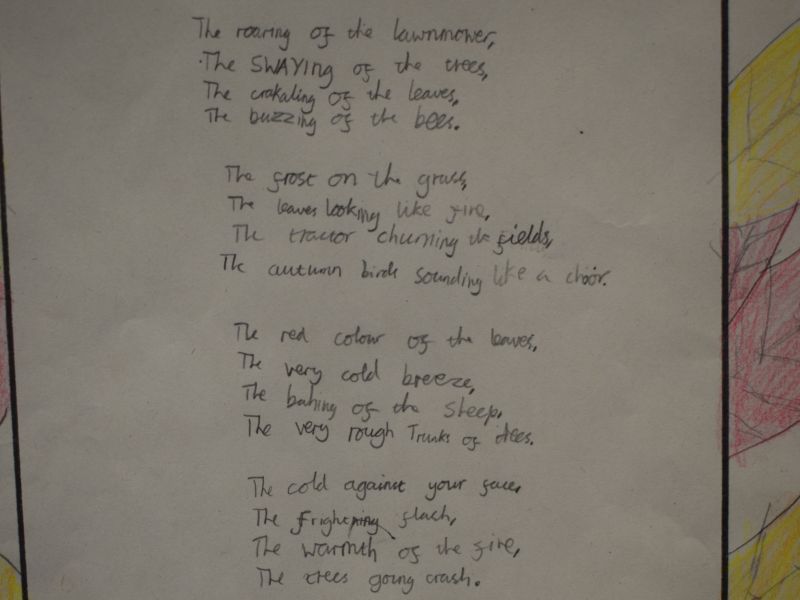 The roaring of the lawnmower,
The SWAYing of the trees,
The crakaling of the leaves,
The buzzing of the bees.
The frost on the grass,
The leaves looking like fire,
The tractor churning the fields,
The autumn birds sounding like a choir.
The red colour of the leaves,
The very cold breeze,
The bahing of the sheep,
The very rough Trunks of trees.
The cold against your face,
The frightening flash,
The warmth of the fire,
The trees going crash.